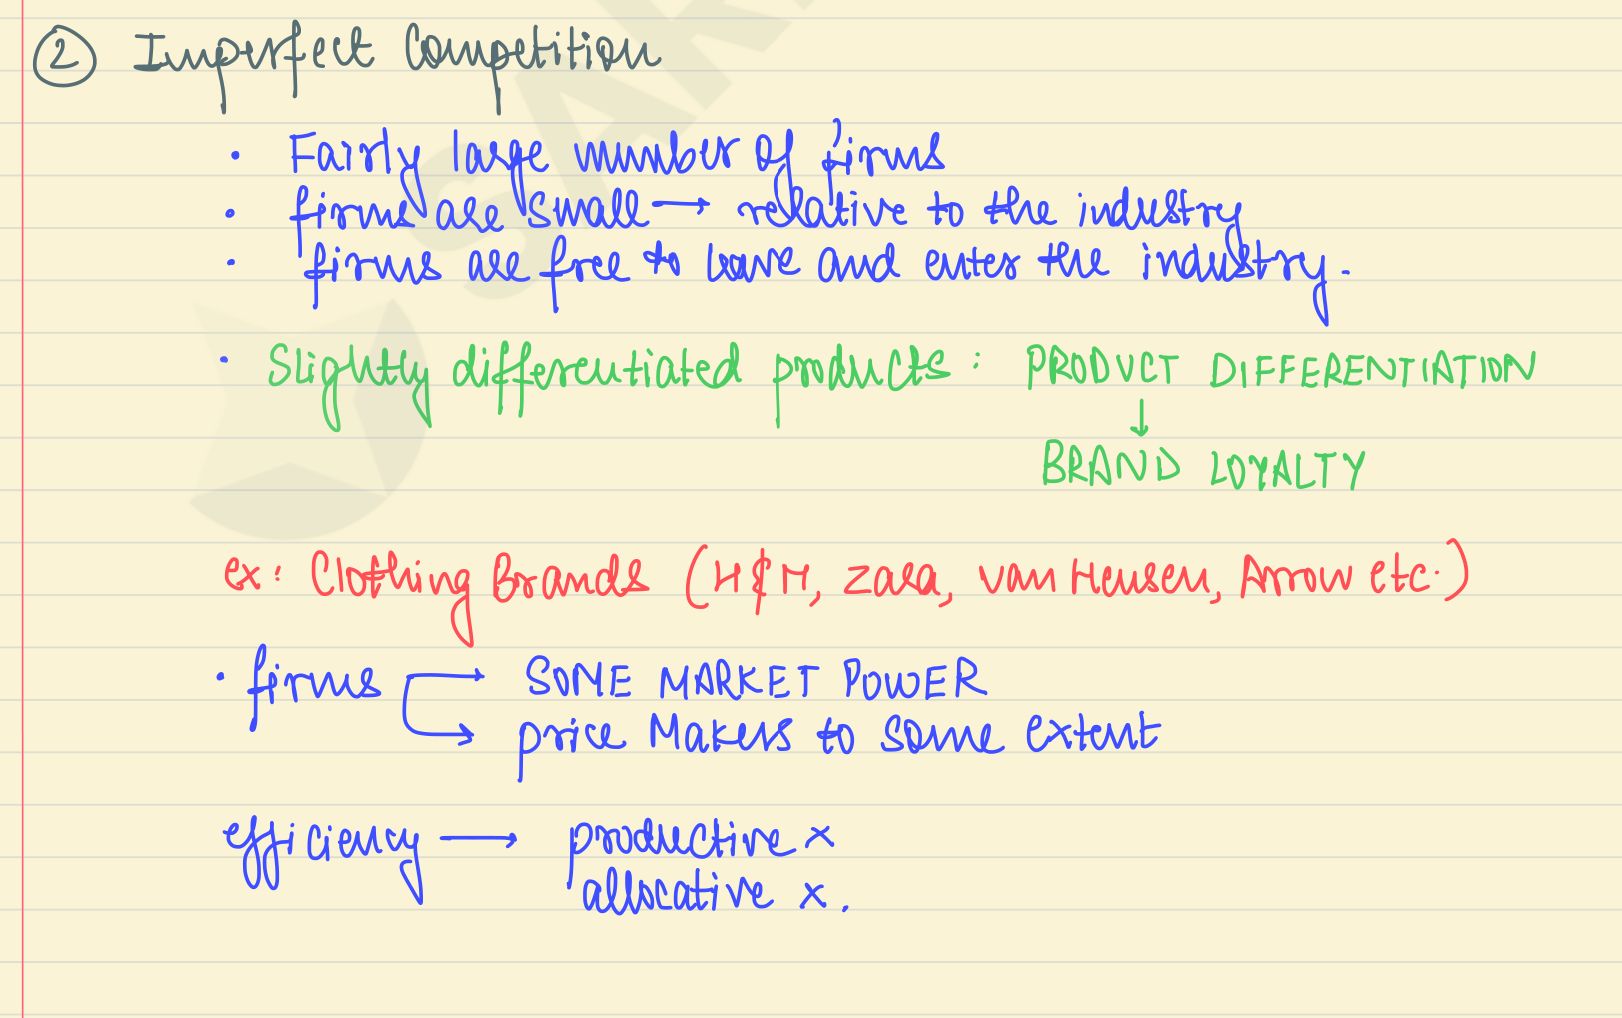 ② Imperfect Competition
• Fairly large number of firms
• firms are small → relative to the industry
• firms are free to leave and enter the industry.
• Slightly differentiated products : PRODUCT DIFFERENTIATION
↓
BRAND LOYALTY
ex: Clothing Brands (H&M, Zara, Van Heusen, Arrow etc.)
• firms → SOME MARKET POWER
→ price Makers to some extent
efficiency → productive x
allocative x.